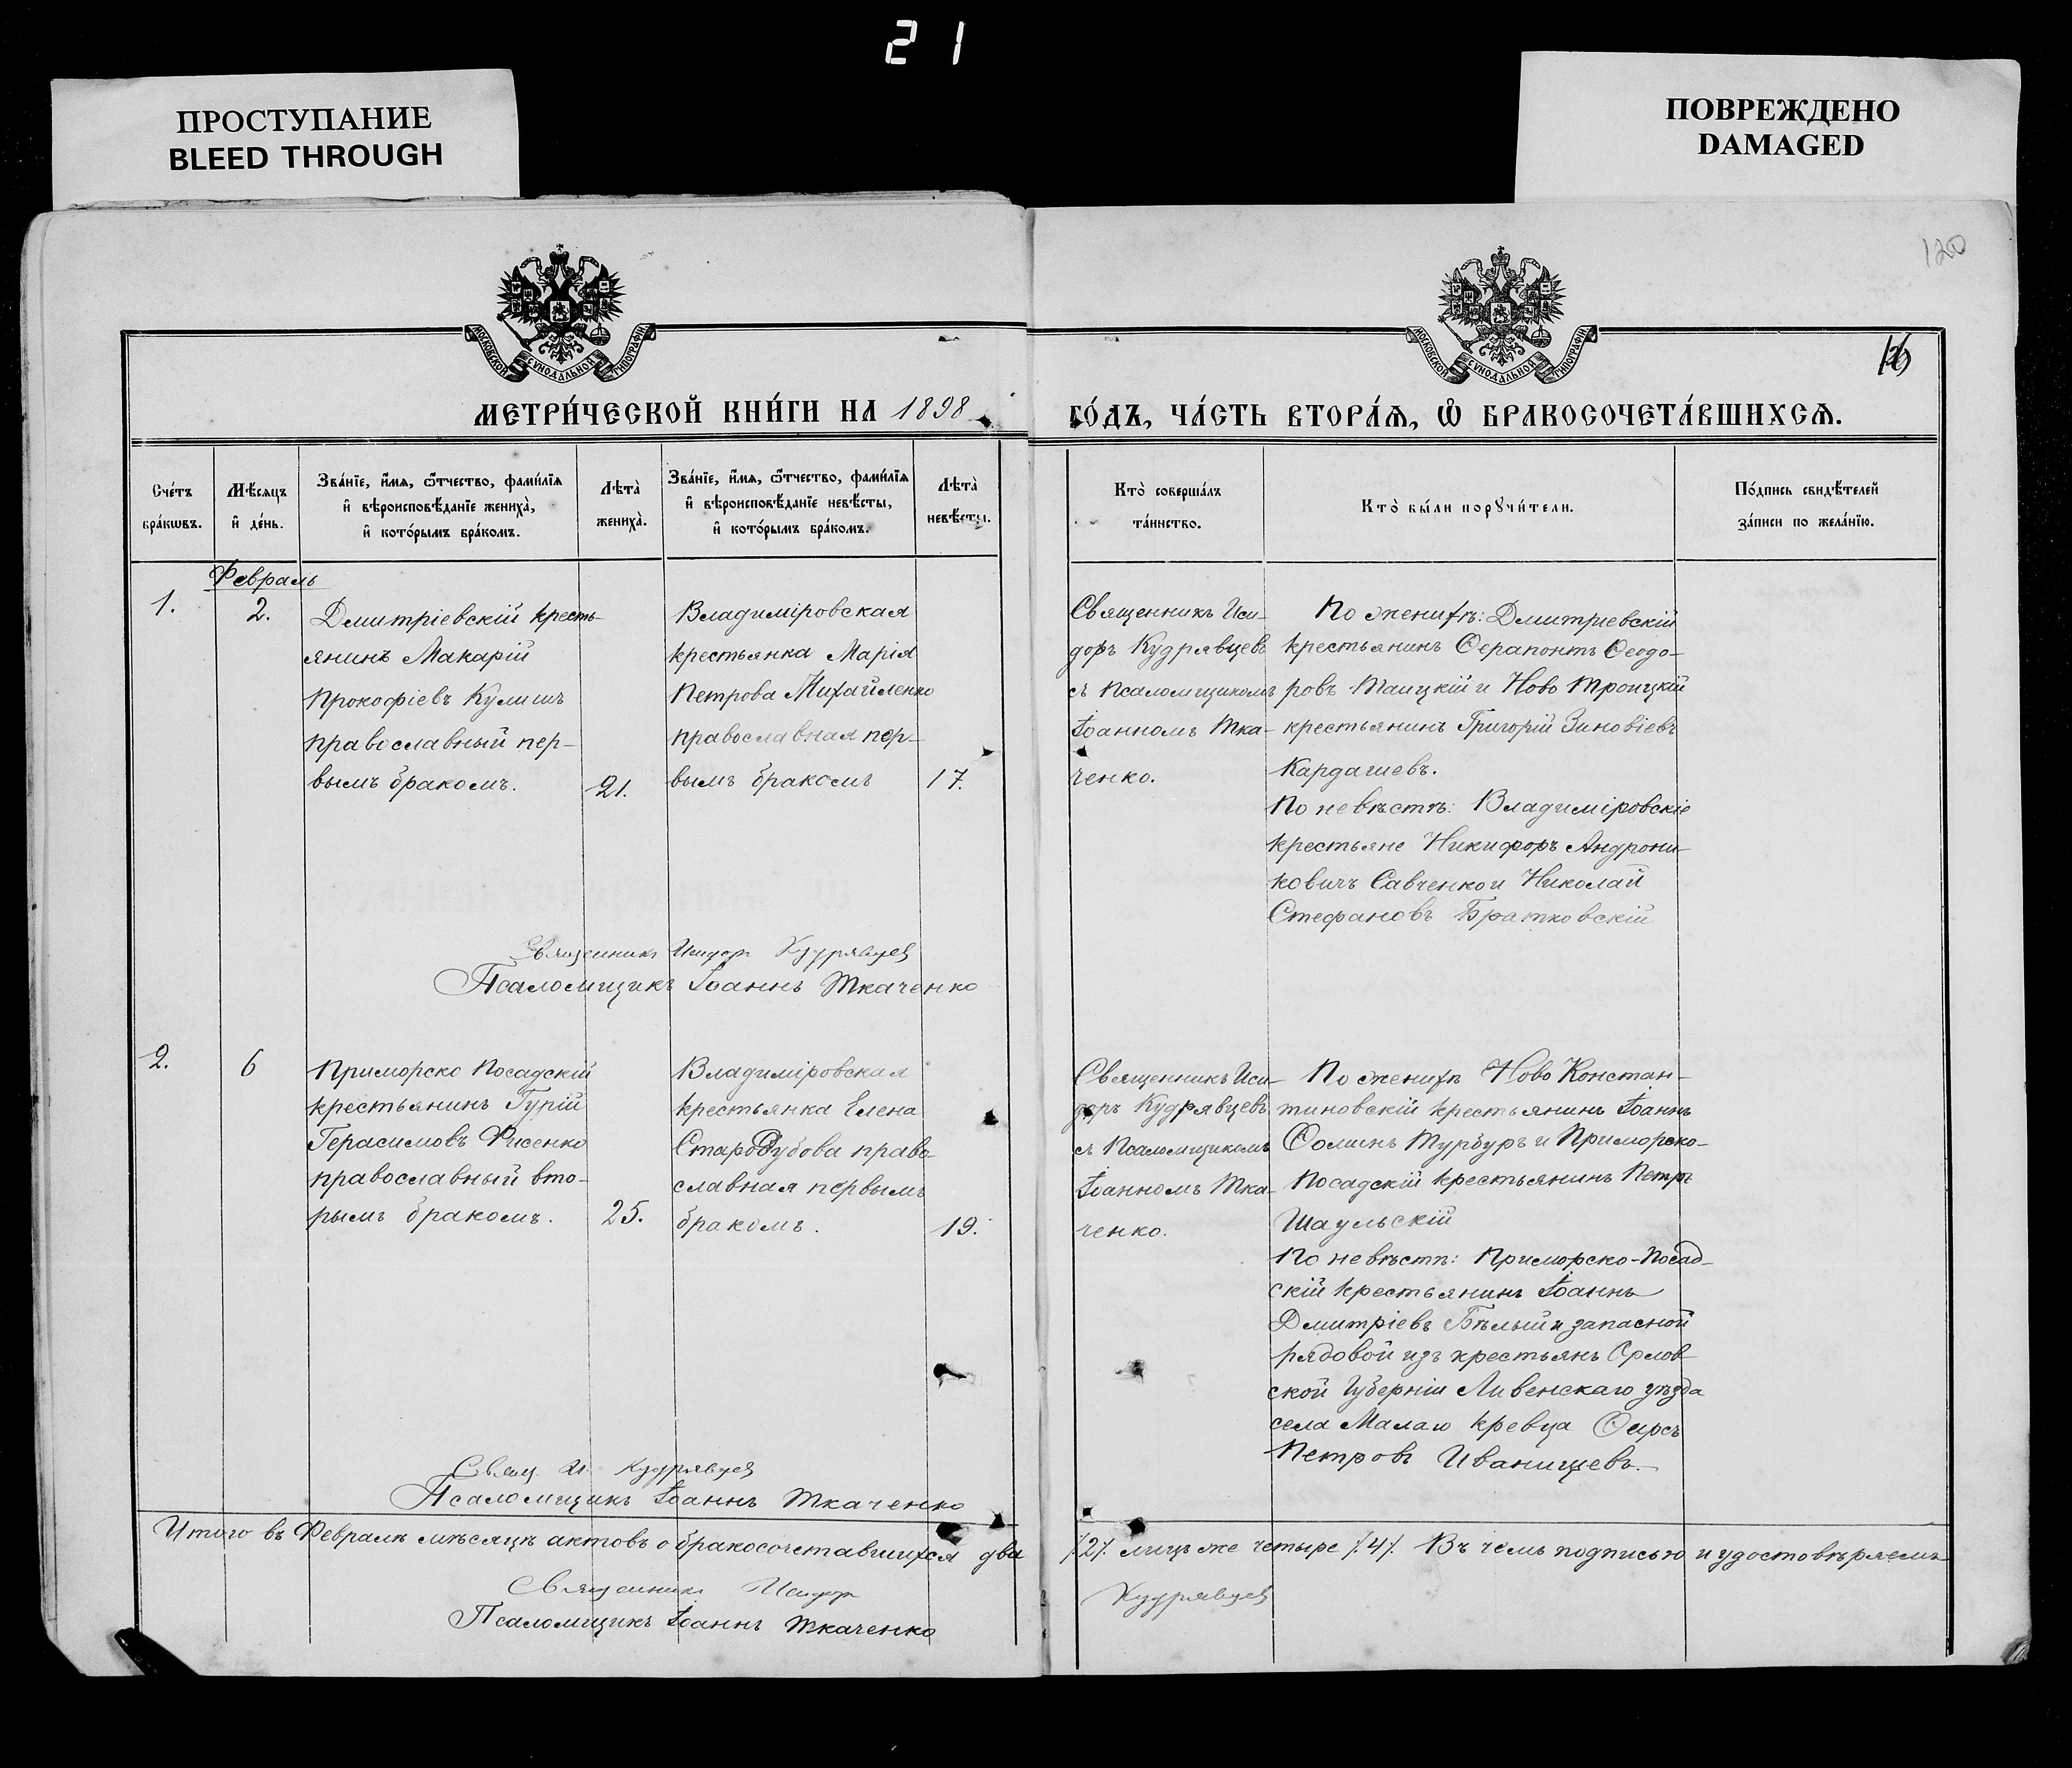 21
ПРОСТУПАНИЕ
BLEED THROUGH
ПОВРЕЖДЕНО
DAMAGED
120
МОСКОВСКОЙ СѴНОДАЛЬНОЙ ТИПОГРАФІИ
МОСКОВСКОЙ СѴНОДАЛЬНОЙ ТИПОГРАФІИ
МЕТРИ́ЧЕСКОЙ КНИ́ГИ НА 1898
ГО́ДЪ, ЧА́СТЬ ВТОРА́Ѧ, Ѡ҆ БРАКОСОЧЕТА́ВШИХСѦ.
Сче́тъ
бра́кѡвъ.
Мѣ́сяцъ
и҆ де́нь.
Зва́нїе, и҆́мя, ѻ҆́тчество, фами́лїя
и҆ вѣроисповѣ́данїе жениха̀,
и҆ кото́рымъ бра́комъ.
Лѣта̀
жениха̀.
Зва́нїе, и҆́мя, ѻ҆́тчество, фами́лїя
и҆ вѣроисповѣ́данїе невѣ́сты,
и҆ кото́рымъ бра́комъ.
Лѣта̀
невѣ́сты.
Кто̀ соверша́лъ
та́инство.
Кто̀ бы́ли порꙋчи́тели.
По́дпись свидѣ́телей
за́писи по жела́нїю.
Февраль
1.
2.
Дмитріевскій кресть-
янинъ Макарій
Прокофіевъ Кулишъ
православный пер-
вымъ бракомъ.
21.
Владиміровская
крестьянка Марія
Петрова Михайленко
православная пер-
вымъ бракомъ
17.
Священникъ Иси-
доръ Кудрявцевъ
съ Псаломщикомъ
Іоанномъ Тка-
ченко.
По женихѣ: Дмитриевскій
крестьянинъ Ѳерапонтъ Ѳеодо-
ровъ Таицкій и Ново Троицкій
крестьянинъ Григорій Зиновіевъ
Кардашевъ.
По невѣстѣ: Владиміровскіе
крестьяне Никифоръ Андрони-
ковичъ Савченко и Николай
Стефановъ Братковскій
Священникъ Исидоръ Кудрявцев
Псаломщикъ Іоаннъ Ткаченко
2.
6
Приморско Посадскій
крестьянинъ Гурій
Герасимовъ Фисенко
православный вто-
рымъ бракомъ.
25.
Владиміровская
крестьянка Елена
Стародубова право-
славная первымъ
бракомъ.
19.
Священникъ Иси-
доръ Кудрявцевъ
съ Псаломщикомъ
Іоанномъ Тка-
ченко.
По женихѣ Ново Констан-
тиновскій крестьянинъ Іоаннъ
Ѳоминъ Турбуръ и Приморско-
Посадскій крестьянинъ Петръ
Шаульскій
По невѣстѣ: Приморско-Посад-
скій крестьянинъ Іоаннъ
Дмитріевъ Бѣлый и запасной
рядовой изъ крестьянъ Орлов-
ской Губерніи Ливенскаго уѣзда
села Малаго Кревца Ѳирсъ
Петровъ Иванищевъ.
Свящ. И. Кудрявцев
Псаломщикъ Іоаннъ Ткаченко
Итого въ Февралѣ мѣсяцѣ актовъ о бракосочетавшихся два
/2/. лицъ же четыре /.4/. Въ чемъ подписью и удостовѣряемъ
Священникъ Исидоръ
Кудрявцев
Псаломщикъ Іоаннъ Ткаченко